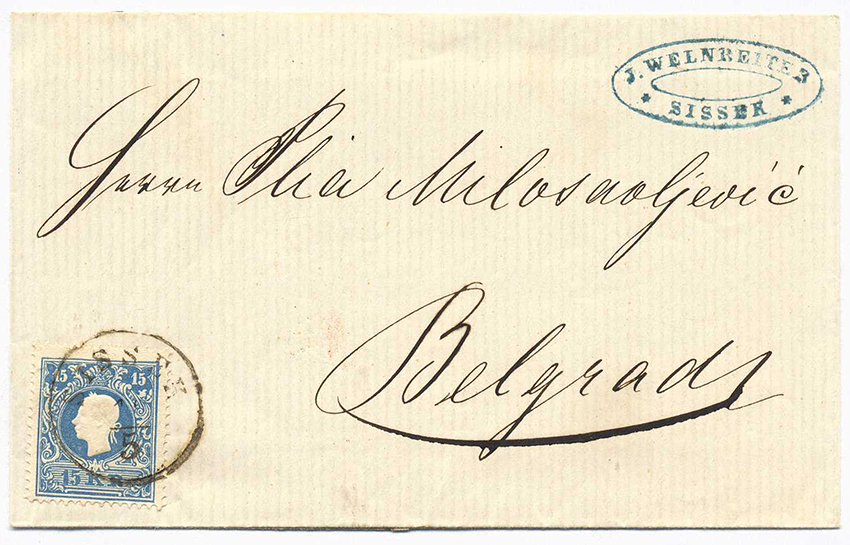 J. WELNREITER
* SISSEK *
Herrn Ilia Milosavljević
Belgrad
SISSEK
5
15 15
15 KR